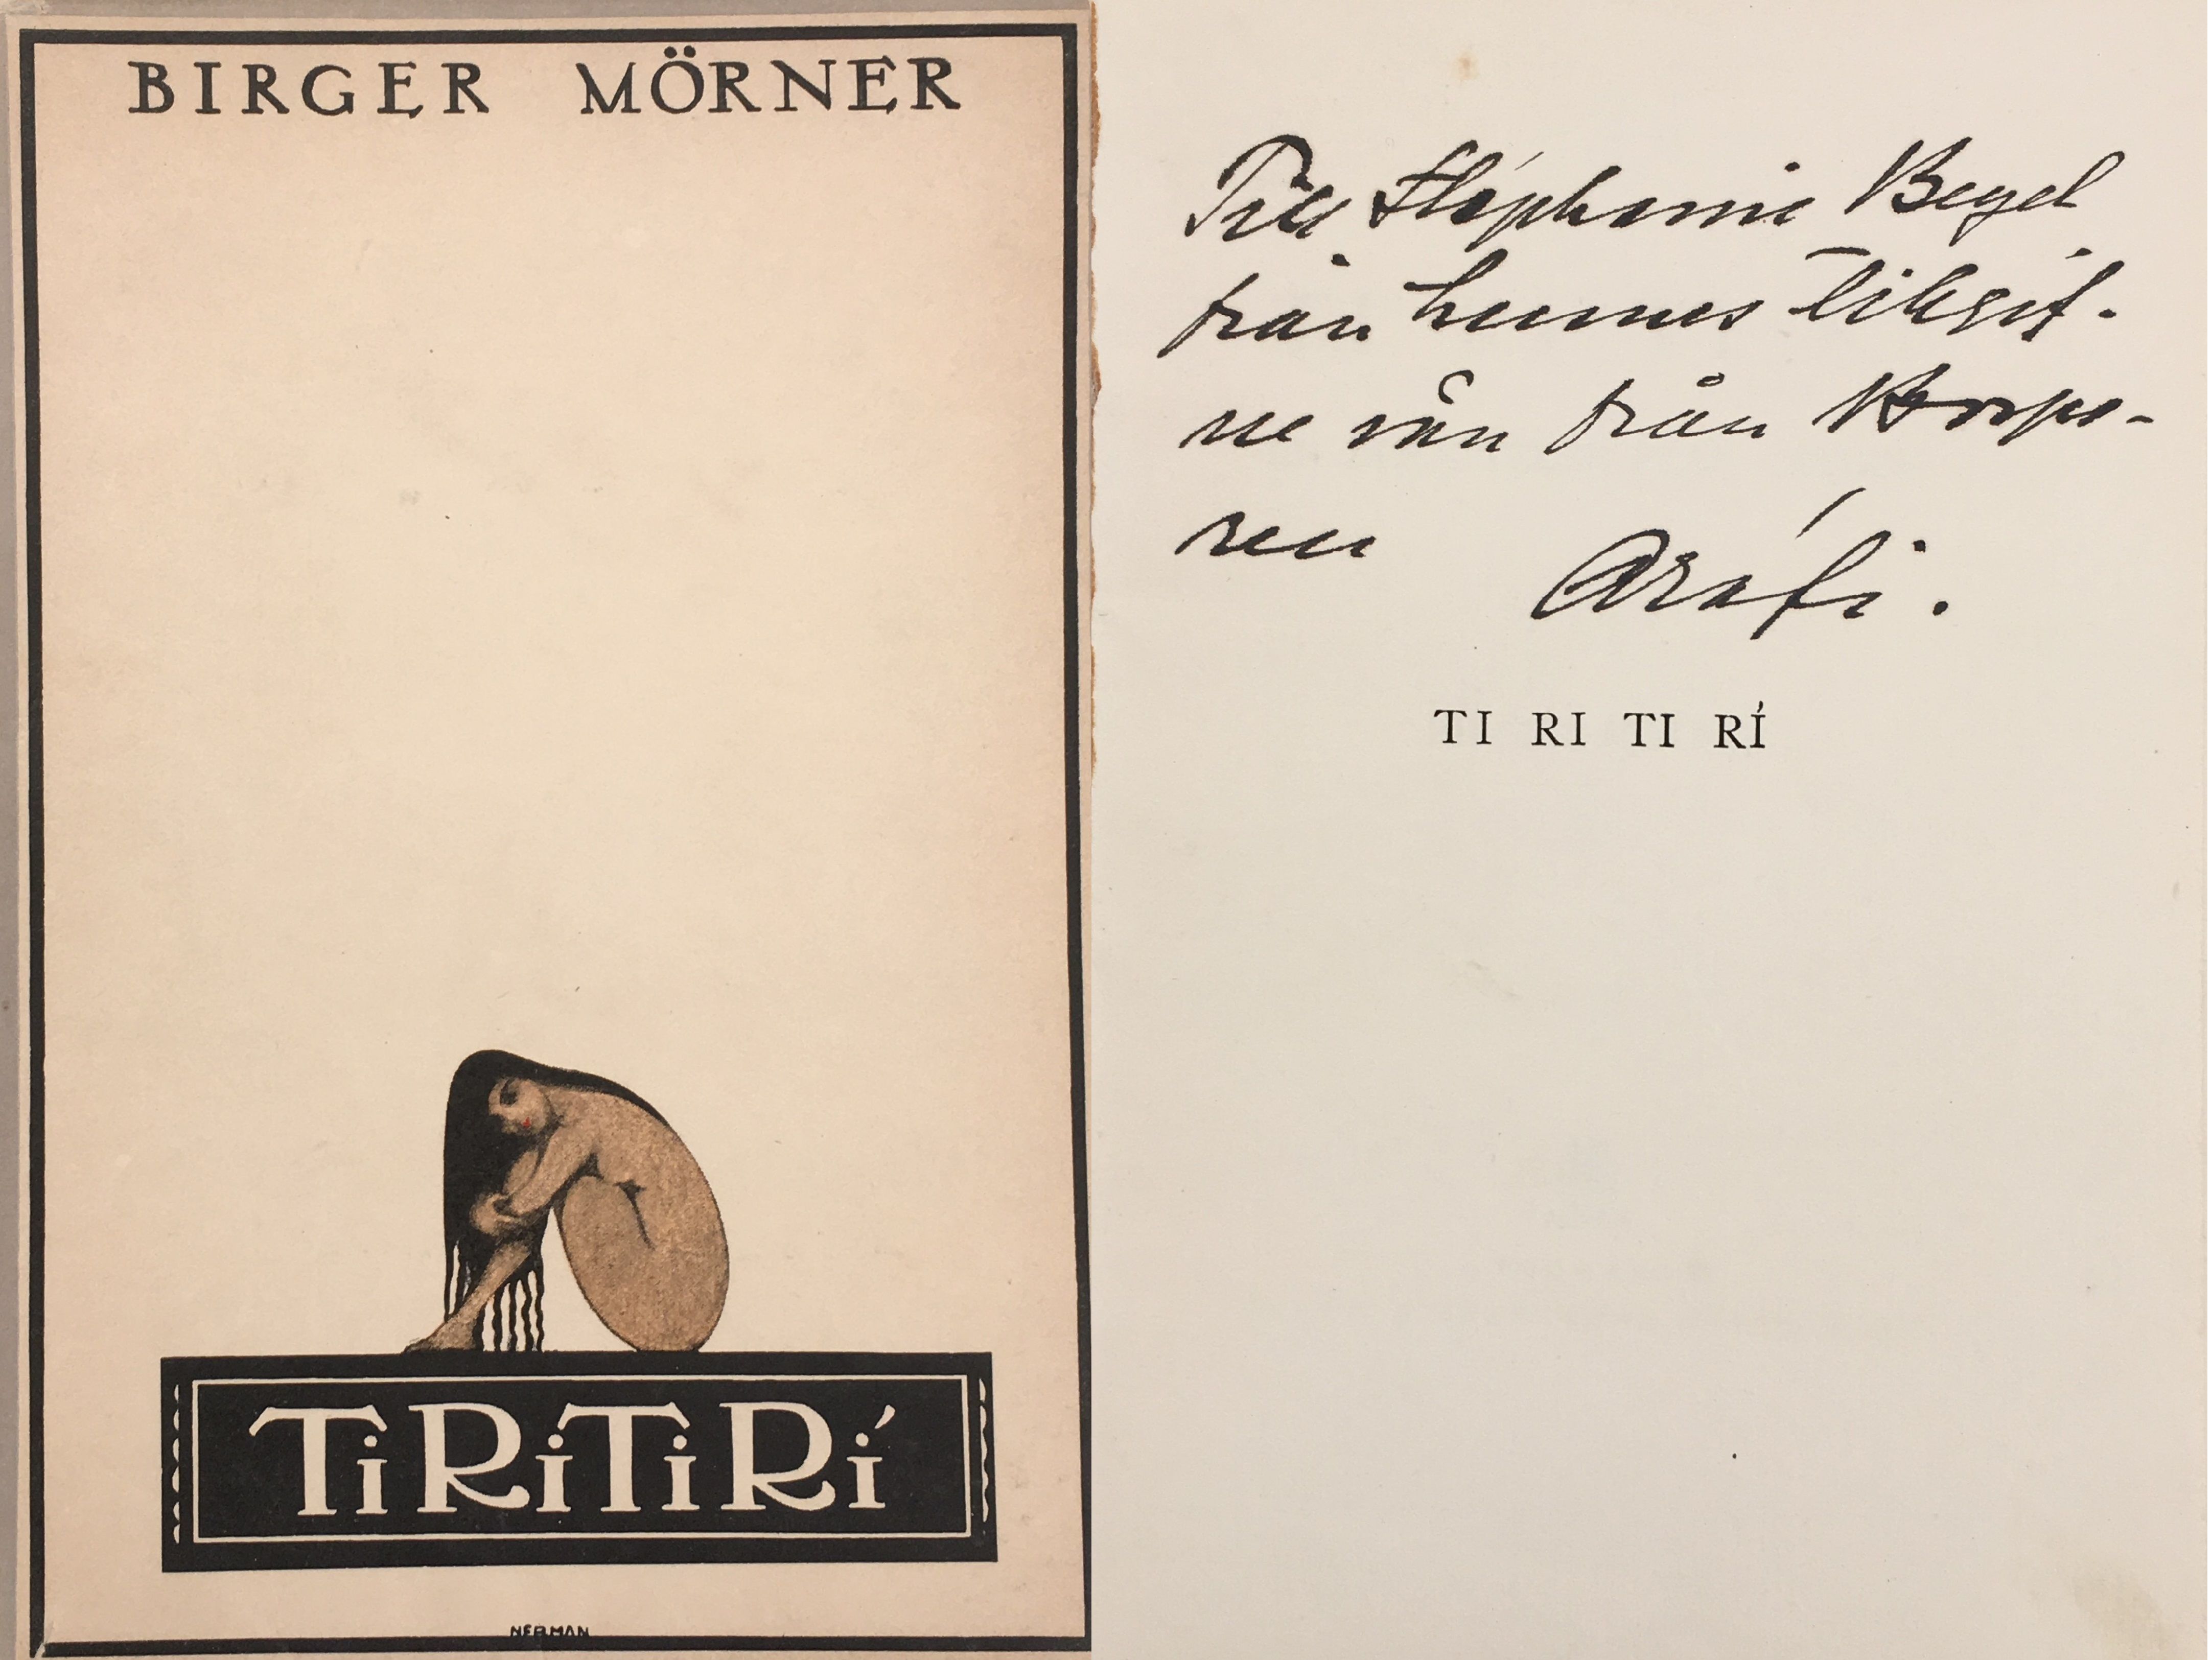 BIRGER MÖRNER
TiRiTiRí
NERMAN
Till Stéphanie Beyel
från hennes tillgif-
ne vän från Bospo-
ren
Arafi.
TI RI TI RÍ